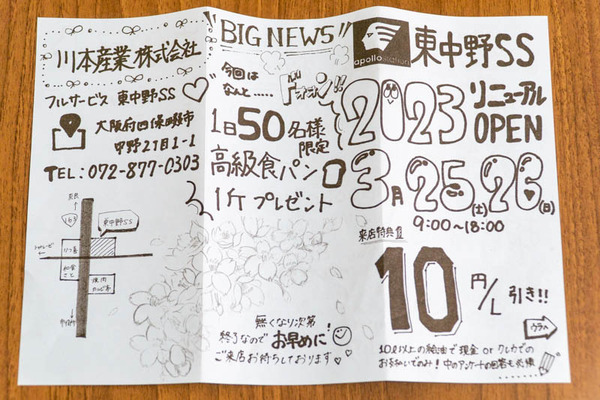 川本産業株式会社
フルサービス 東中野SS
大阪府四條畷市
中野2丁目1-1
TEL:072-877-0303
奈良
163
東中野SS
BIG NEWS
今回は
なんと.....
ドドドン!!
1日50名様
限定
高級食パン
1ケプレゼント
無くなり次第
終了なのでお早めに!
ご来店お待ちしております
apollostation
東中野SS
2023
リニューアル
OPEN
3月25(土)26(日)
9:00~18:00
来店特典
10円/L引き!!
ウラへ
10L以上の給油で現金orクレカでの
お支払いでのみ!中のアンケートの回答も必須